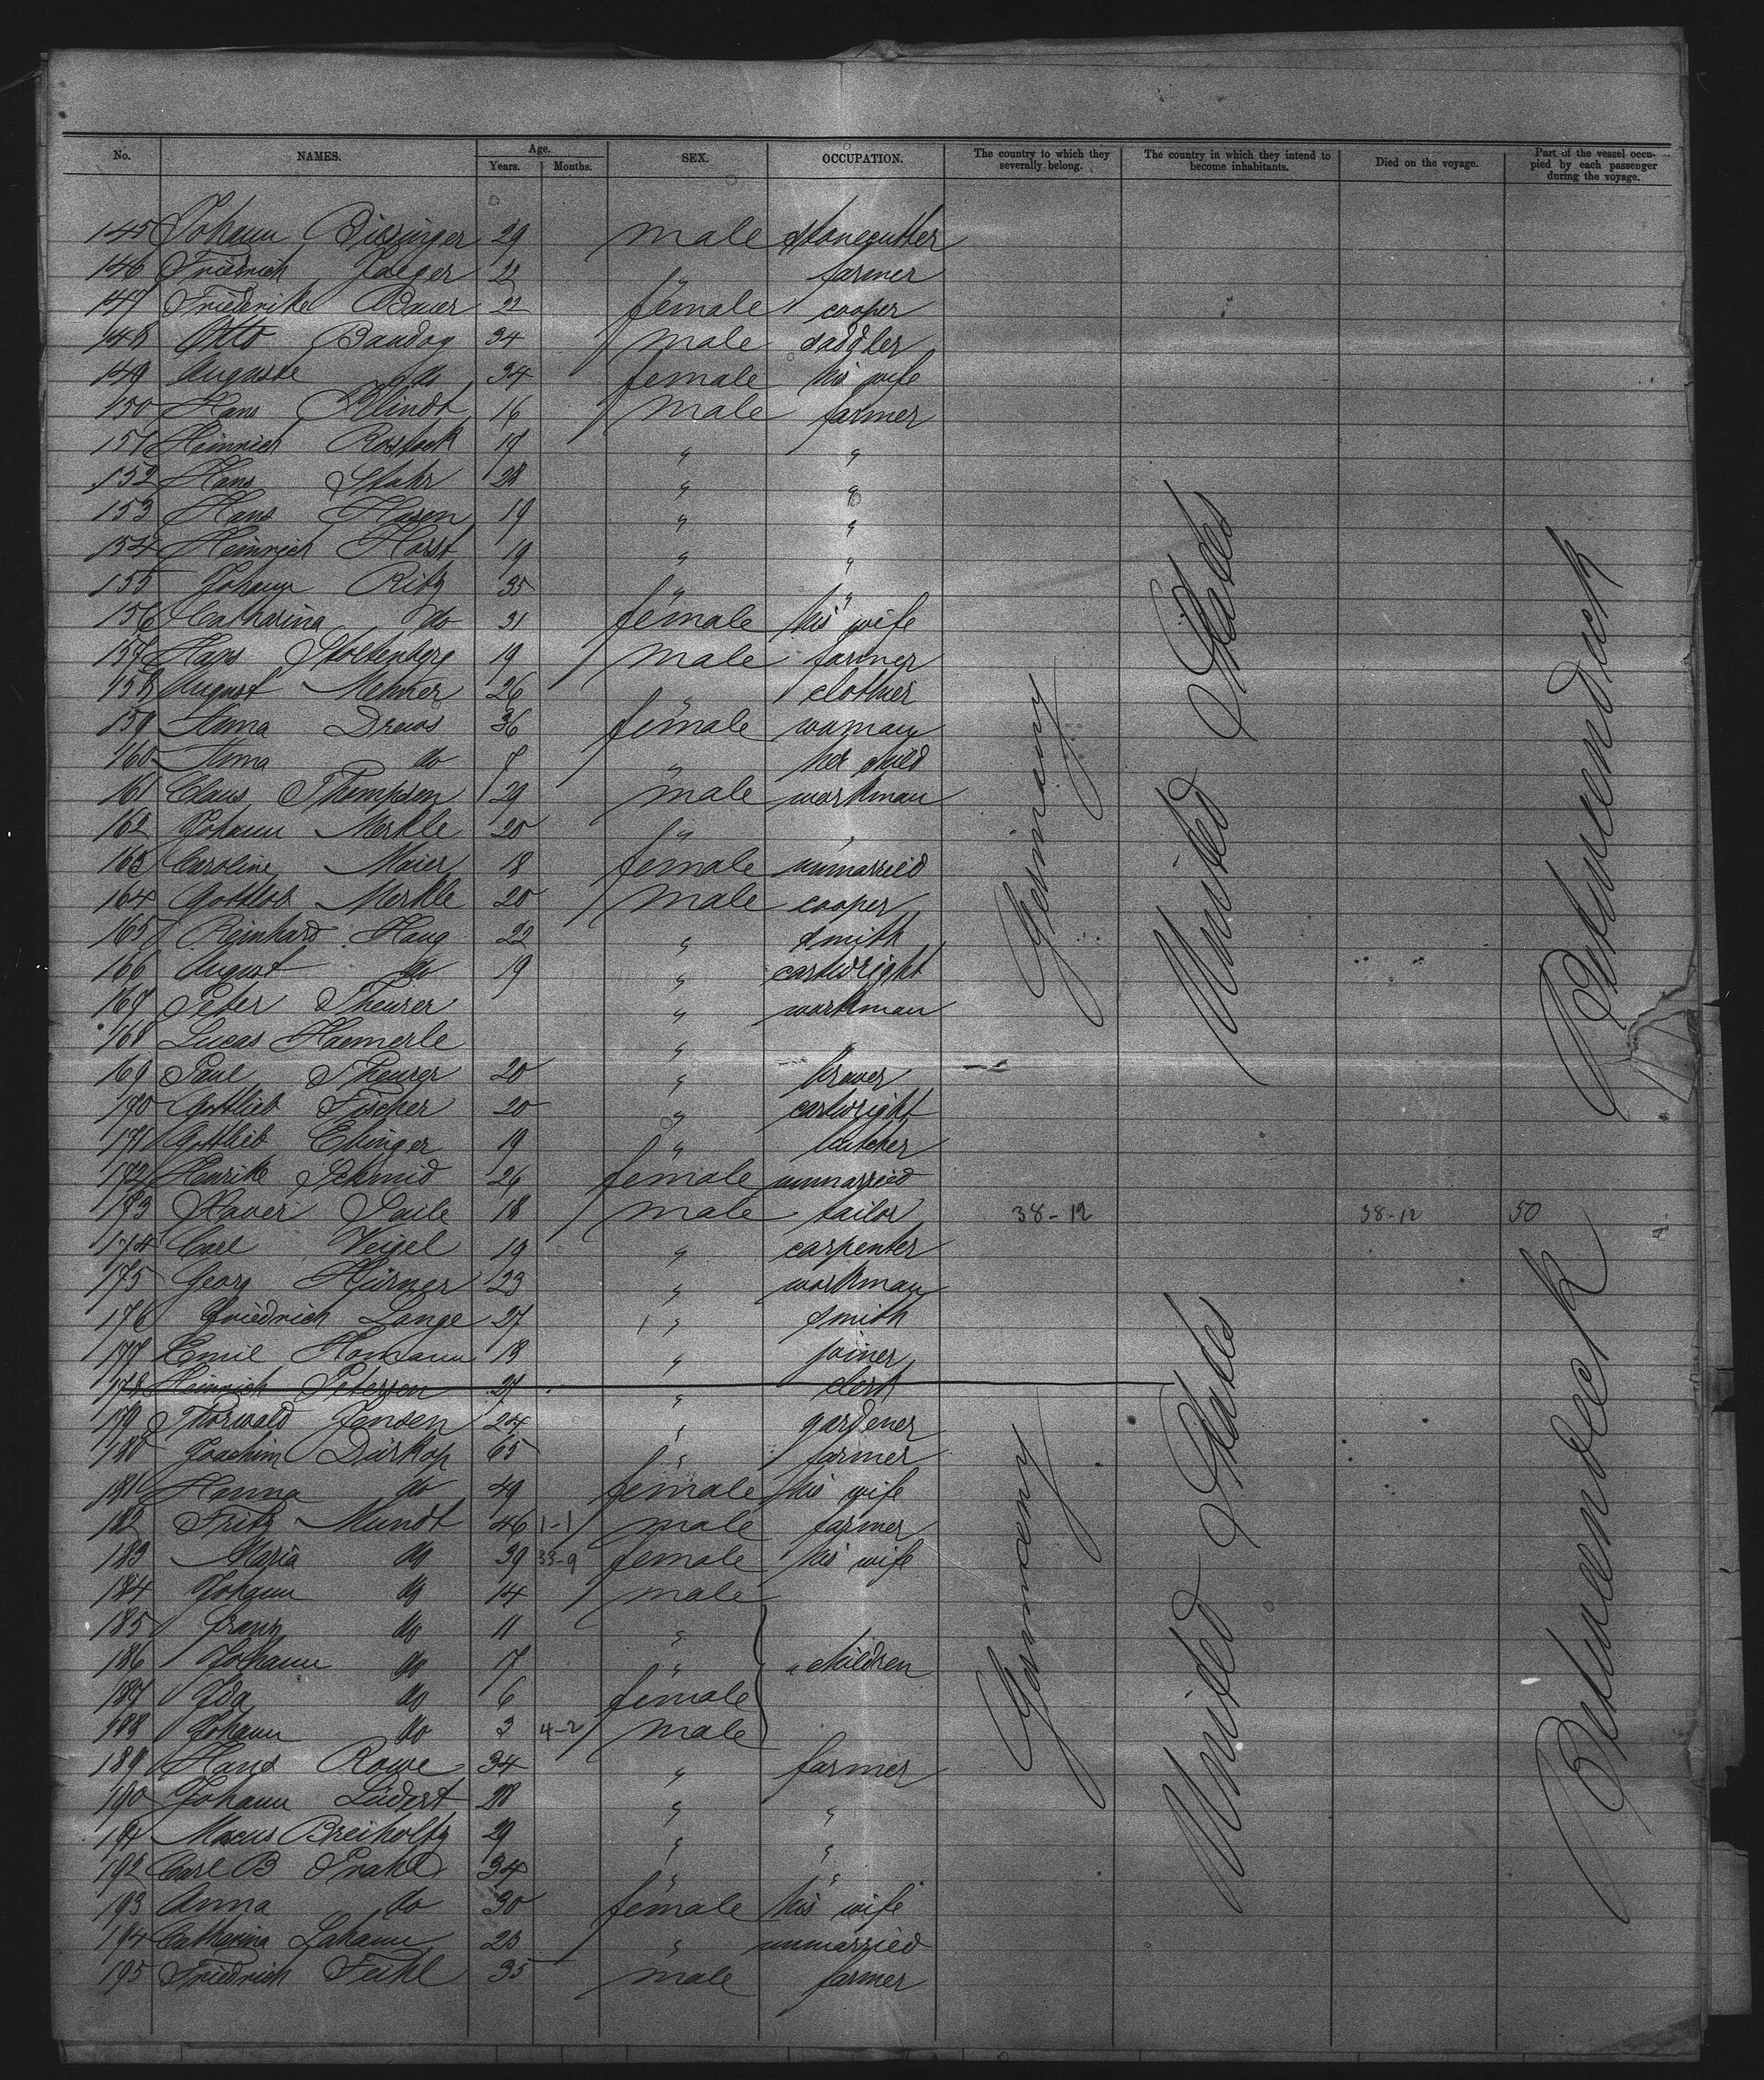 No. NAMES. Age. Years. Months. SEX. OCCUPATION. The country to which they severally belong. The country in which they intend to become inhabitants. Died on the voyage. Part of the vessel occupied by each passenger during the voyage.
145 Johann Bissinger 29 male stonecutter
146 Friedrich Jaeger 22 " farmer
147 Friederike Bauer 22 female cooper
148 Otto Bandog 34 male saddler
149 Auguste do 34 female his wife
150 Hans Blindt 16 male farmer
151 Heinrich Rostock 17 " "
152 Hans Stahr 28 " "
153 Hans Hasen 19 " "
154 Heinrich Horst 19 " "
155 Johann Ritz 35 " "
156 Catharina do 31 female his wife
157 Hans Stoltenberg 19 male farmer
158 August Mehner 26 " clothier
159 Anna Drews 36 female woman
160 Anna do 7 " her child
161 Claus Thompsen 29 male workman
162 Johann Merkle 20 " "
163 Caroline Maier 18 female unmarried
164 Gottlob Merkle 20 male cooper
165 Reinhard Haug 22 " smith
166 August do 19 " cartwright
167 Peter Theurer " workman
168 Lucas Haemerle " "
169 Paul Theurer 20 " brewer
170 Gottlieb Fischer 20 " cartwright
171 Gottlieb Ebinger 19 " butcher
172 Henrike Schmid 26 female unmarried
173 Xaver Saile 18 male tailor 38-12 38-12 50
174 Carl Veigel 19 " carpenter
175 Georg Hürner 23 " workman
176 Friedrich Lange 27 " smith
177 Emil Homann 18 " joiner
178 Heinrich Petersen 27 " clerk
179 Thorwald Jensen 24 " gardener
180 Joachim Dürkop 65 " farmer
181 Hanna do 49 female his wife
182 Fritz Mundt 46 1-1 male farmer
183 Maria do 39 33-9 female his wife
184 Johann do 14 male
185 Franz do 11 "
186 Johann do 7 " children
187 Ida do 6 female
188 Johann do 3 4-2 male
189 Hans Rowe 34 " farmer
190 Johann Lüdert 28 " "
191 Marcus Breiholtz 29 " "
192 Carl B Prahl 34 " "
193 Anna do 30 female his wife
194 Catherina Lahann 23 " unmarried
195 Friedrich Feihl 35 male farmer
Germany
United States
Betweendeck
Germany
United States
Betweendeck